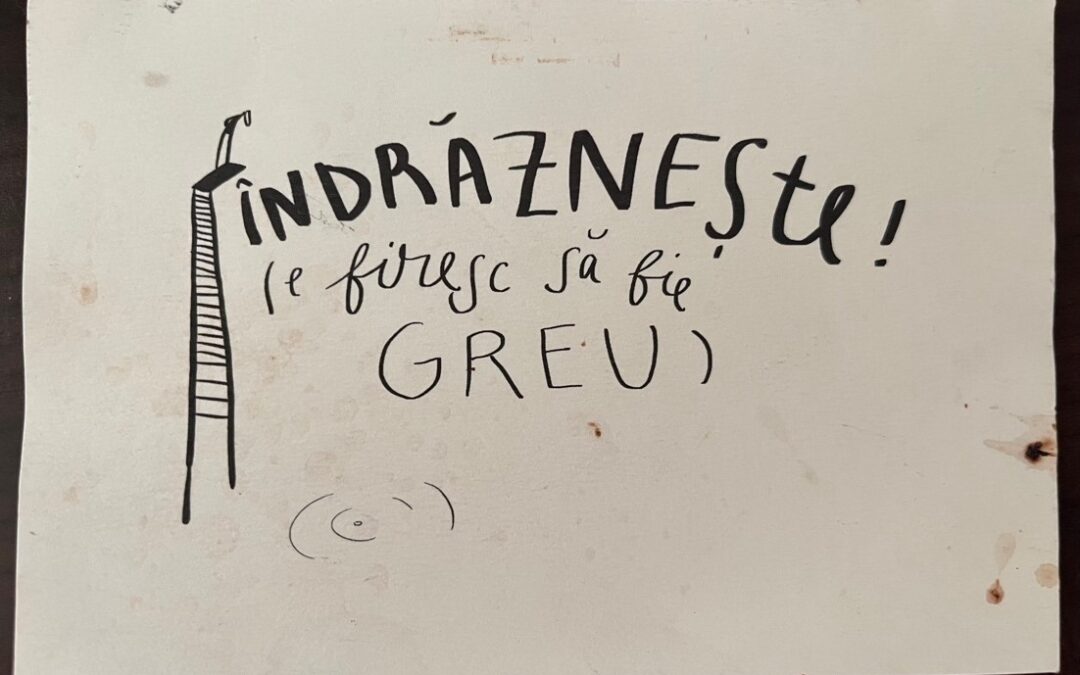 ÎNDRĂZNEȘte!
(e firesc să fie
GREU)